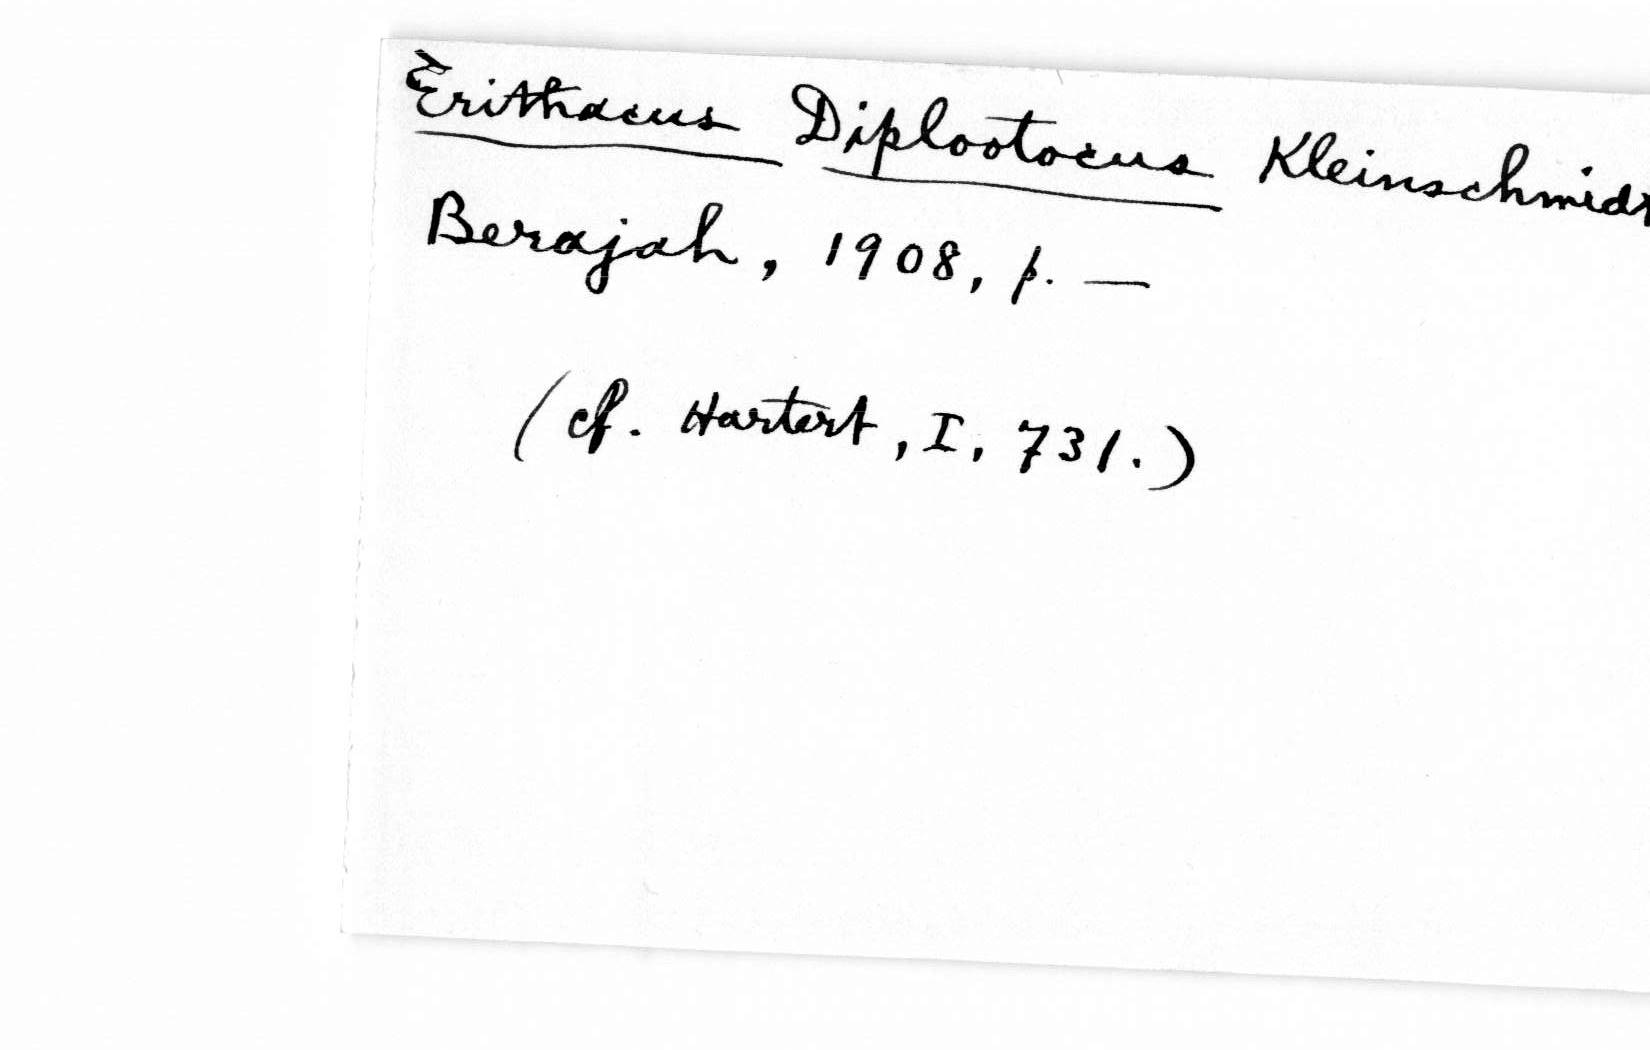 Erithacus Diplootocus Kleinschmidt
Berajah, 1908, p. —
(cf. Hartert, I, 731.)